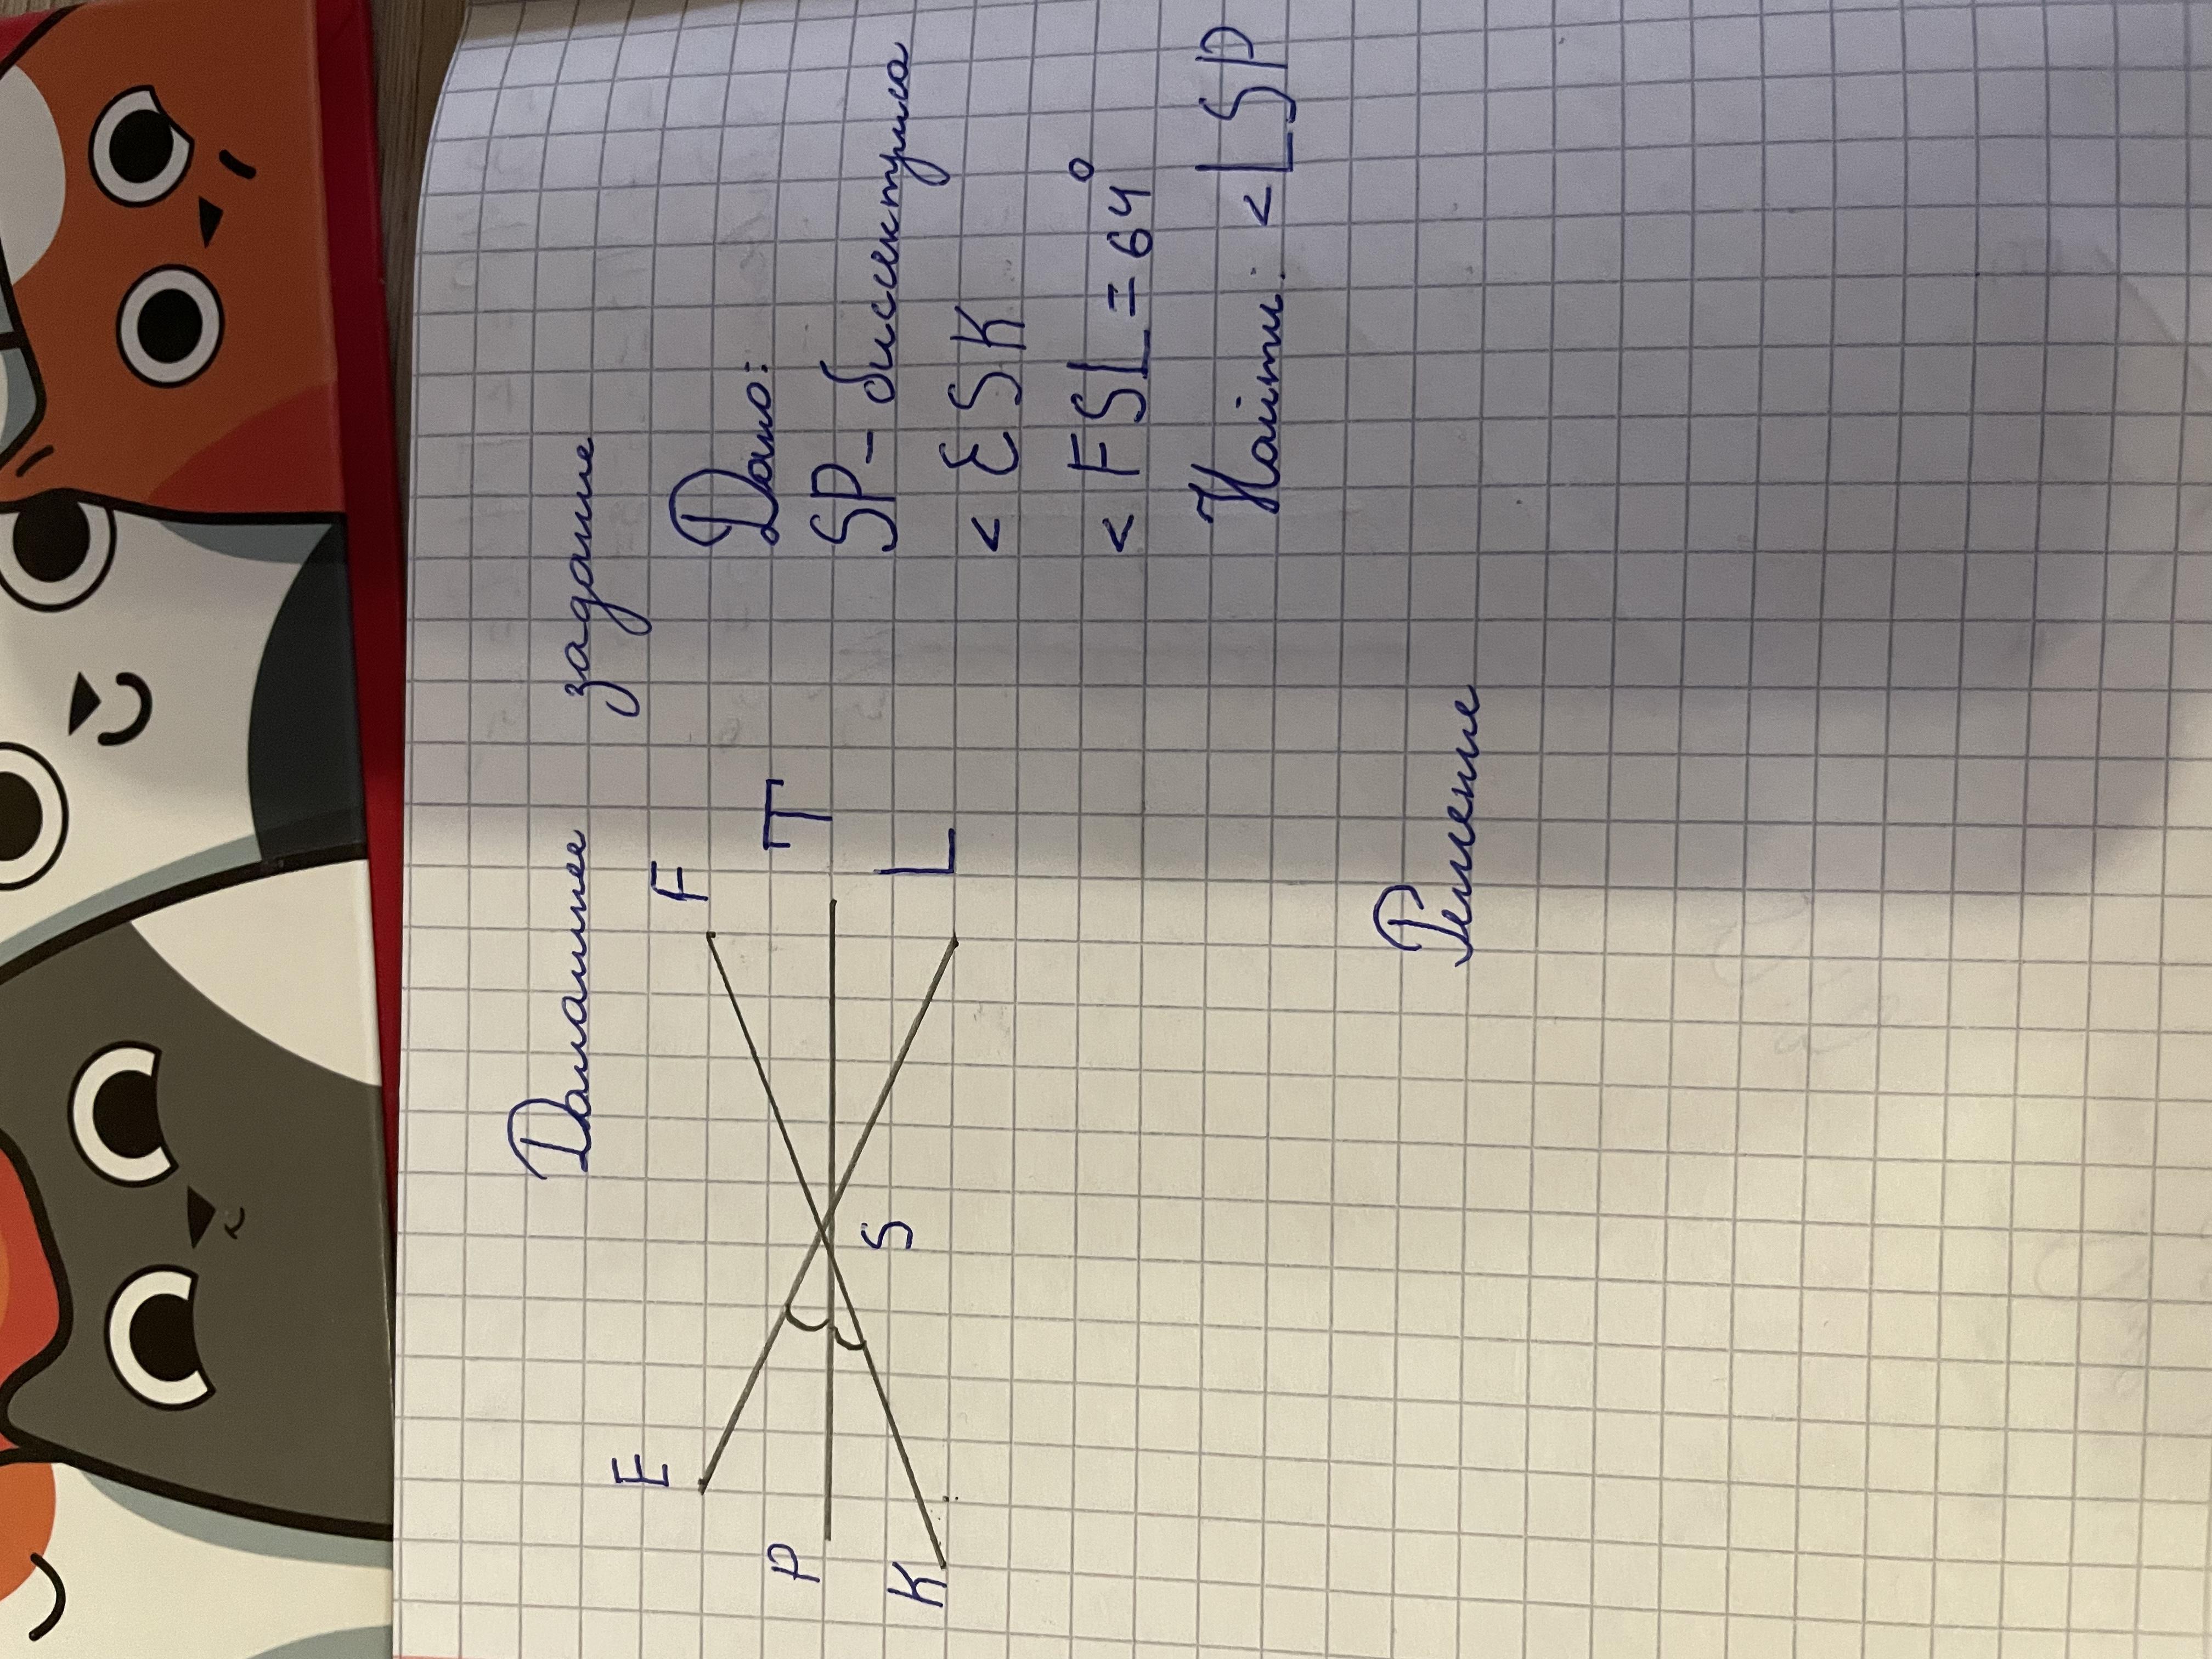 Домашнее задание
E
F
P
T
K
L
S
Дано:
SP - биссектриса
< ESK
< FSL = 64°
Найти: < LSP
Решение